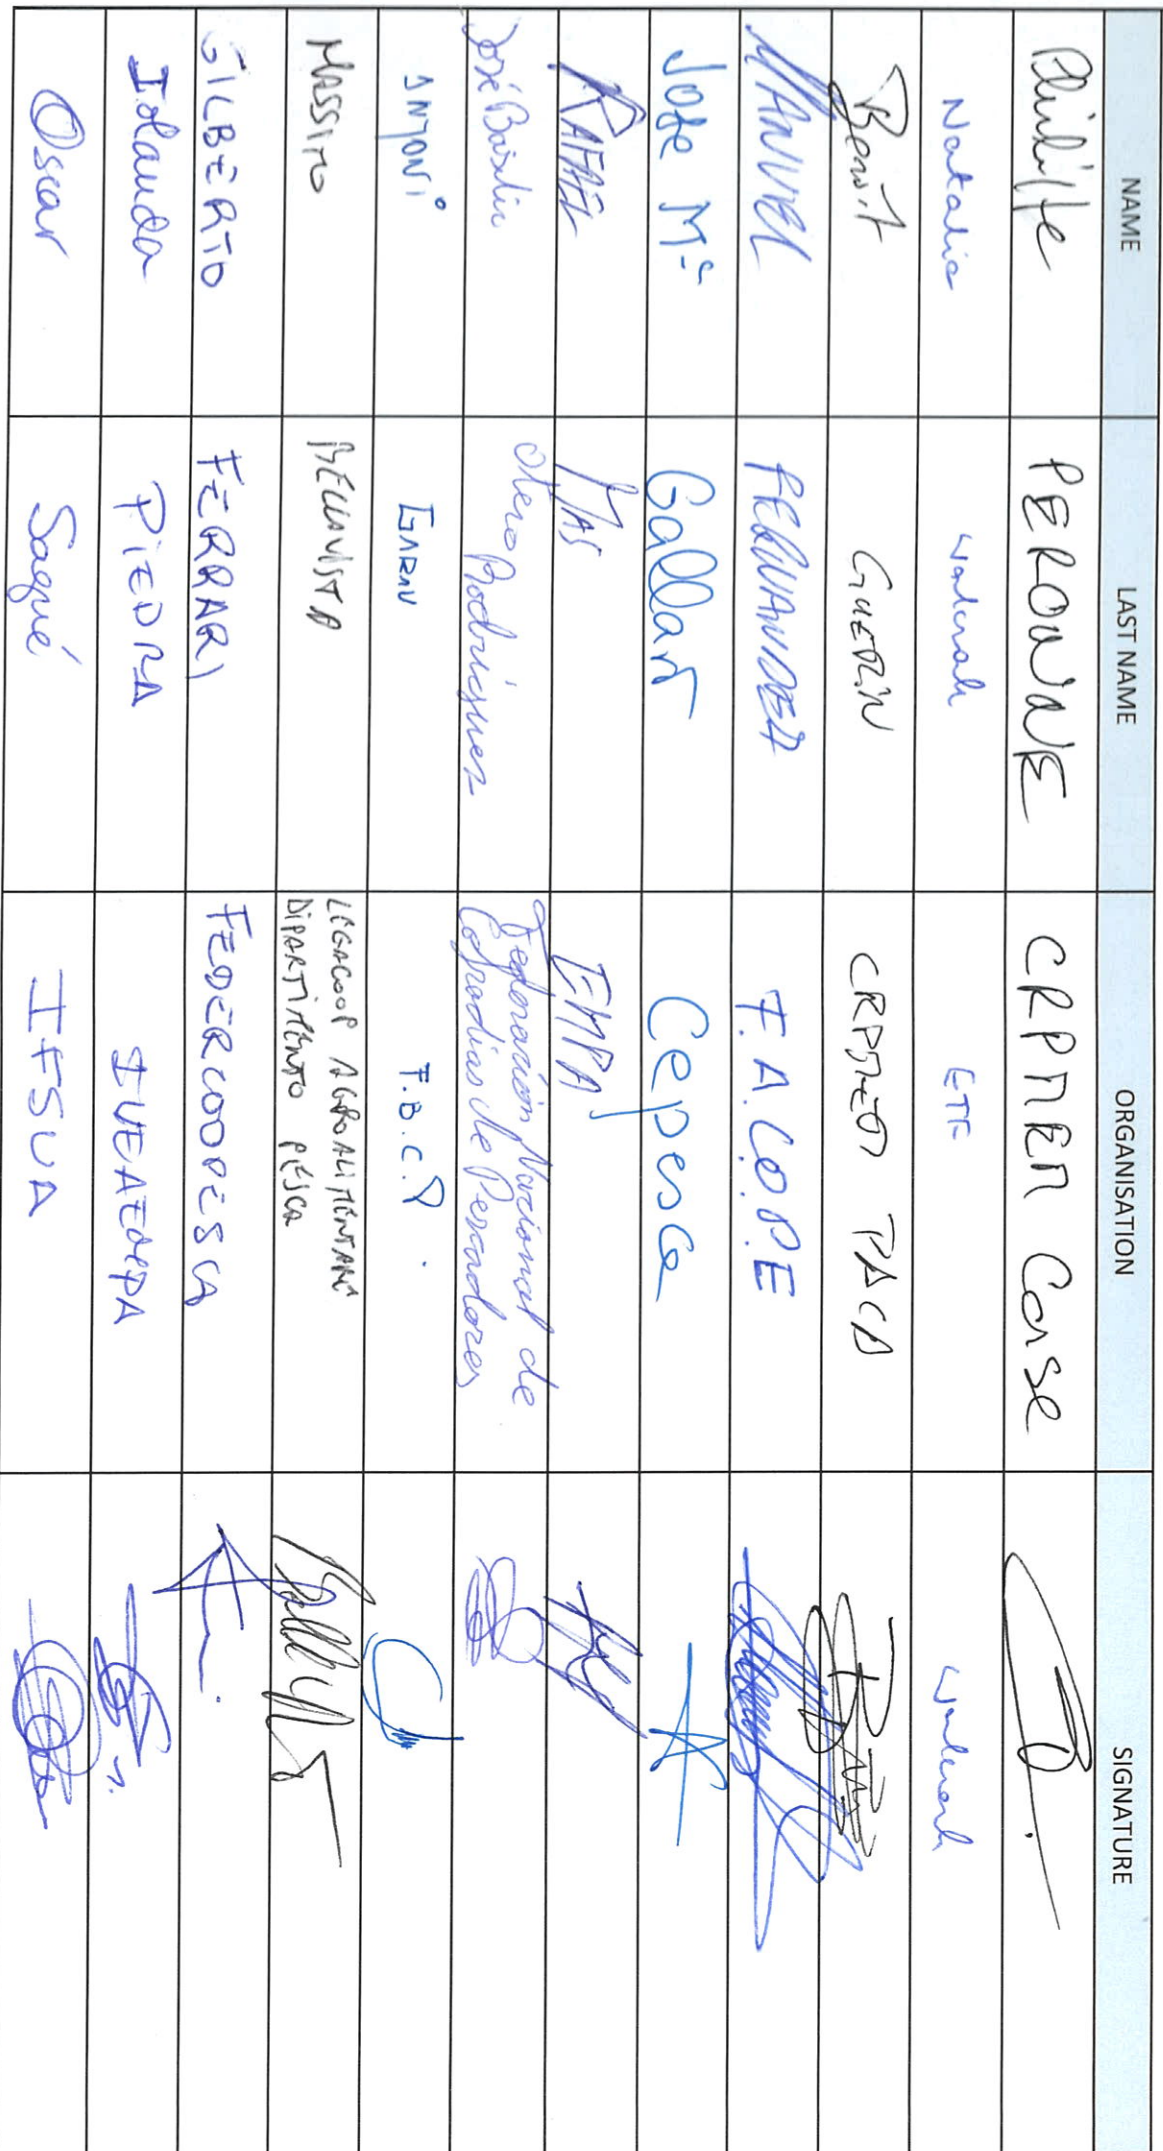 NAME LAST NAME ORGANISATION SIGNATURE
Philippe PERONNE CRPMEM Corse
Natalie ETF
Benoit GUERIN CRPMEM PACA
MANUEL FERNANDEZ F.A.CO.P.E
Jose Mª Gallart Cepesca
RAFAEL MAS EMPA
José Basilio Otero Rodríguez Federación Nacional de
Cofradías de Pescadores
ANTONI GARAU F.B.C.P.
MASSIMO BELLAVISTA LEGACOOP AGROALIMENTARE
DIPARTIMENTO PESCA
GILBERTO FERRARI FEDERCOOPESCA
Iolanda PIEDRA
Oscar Sagué IFSUA